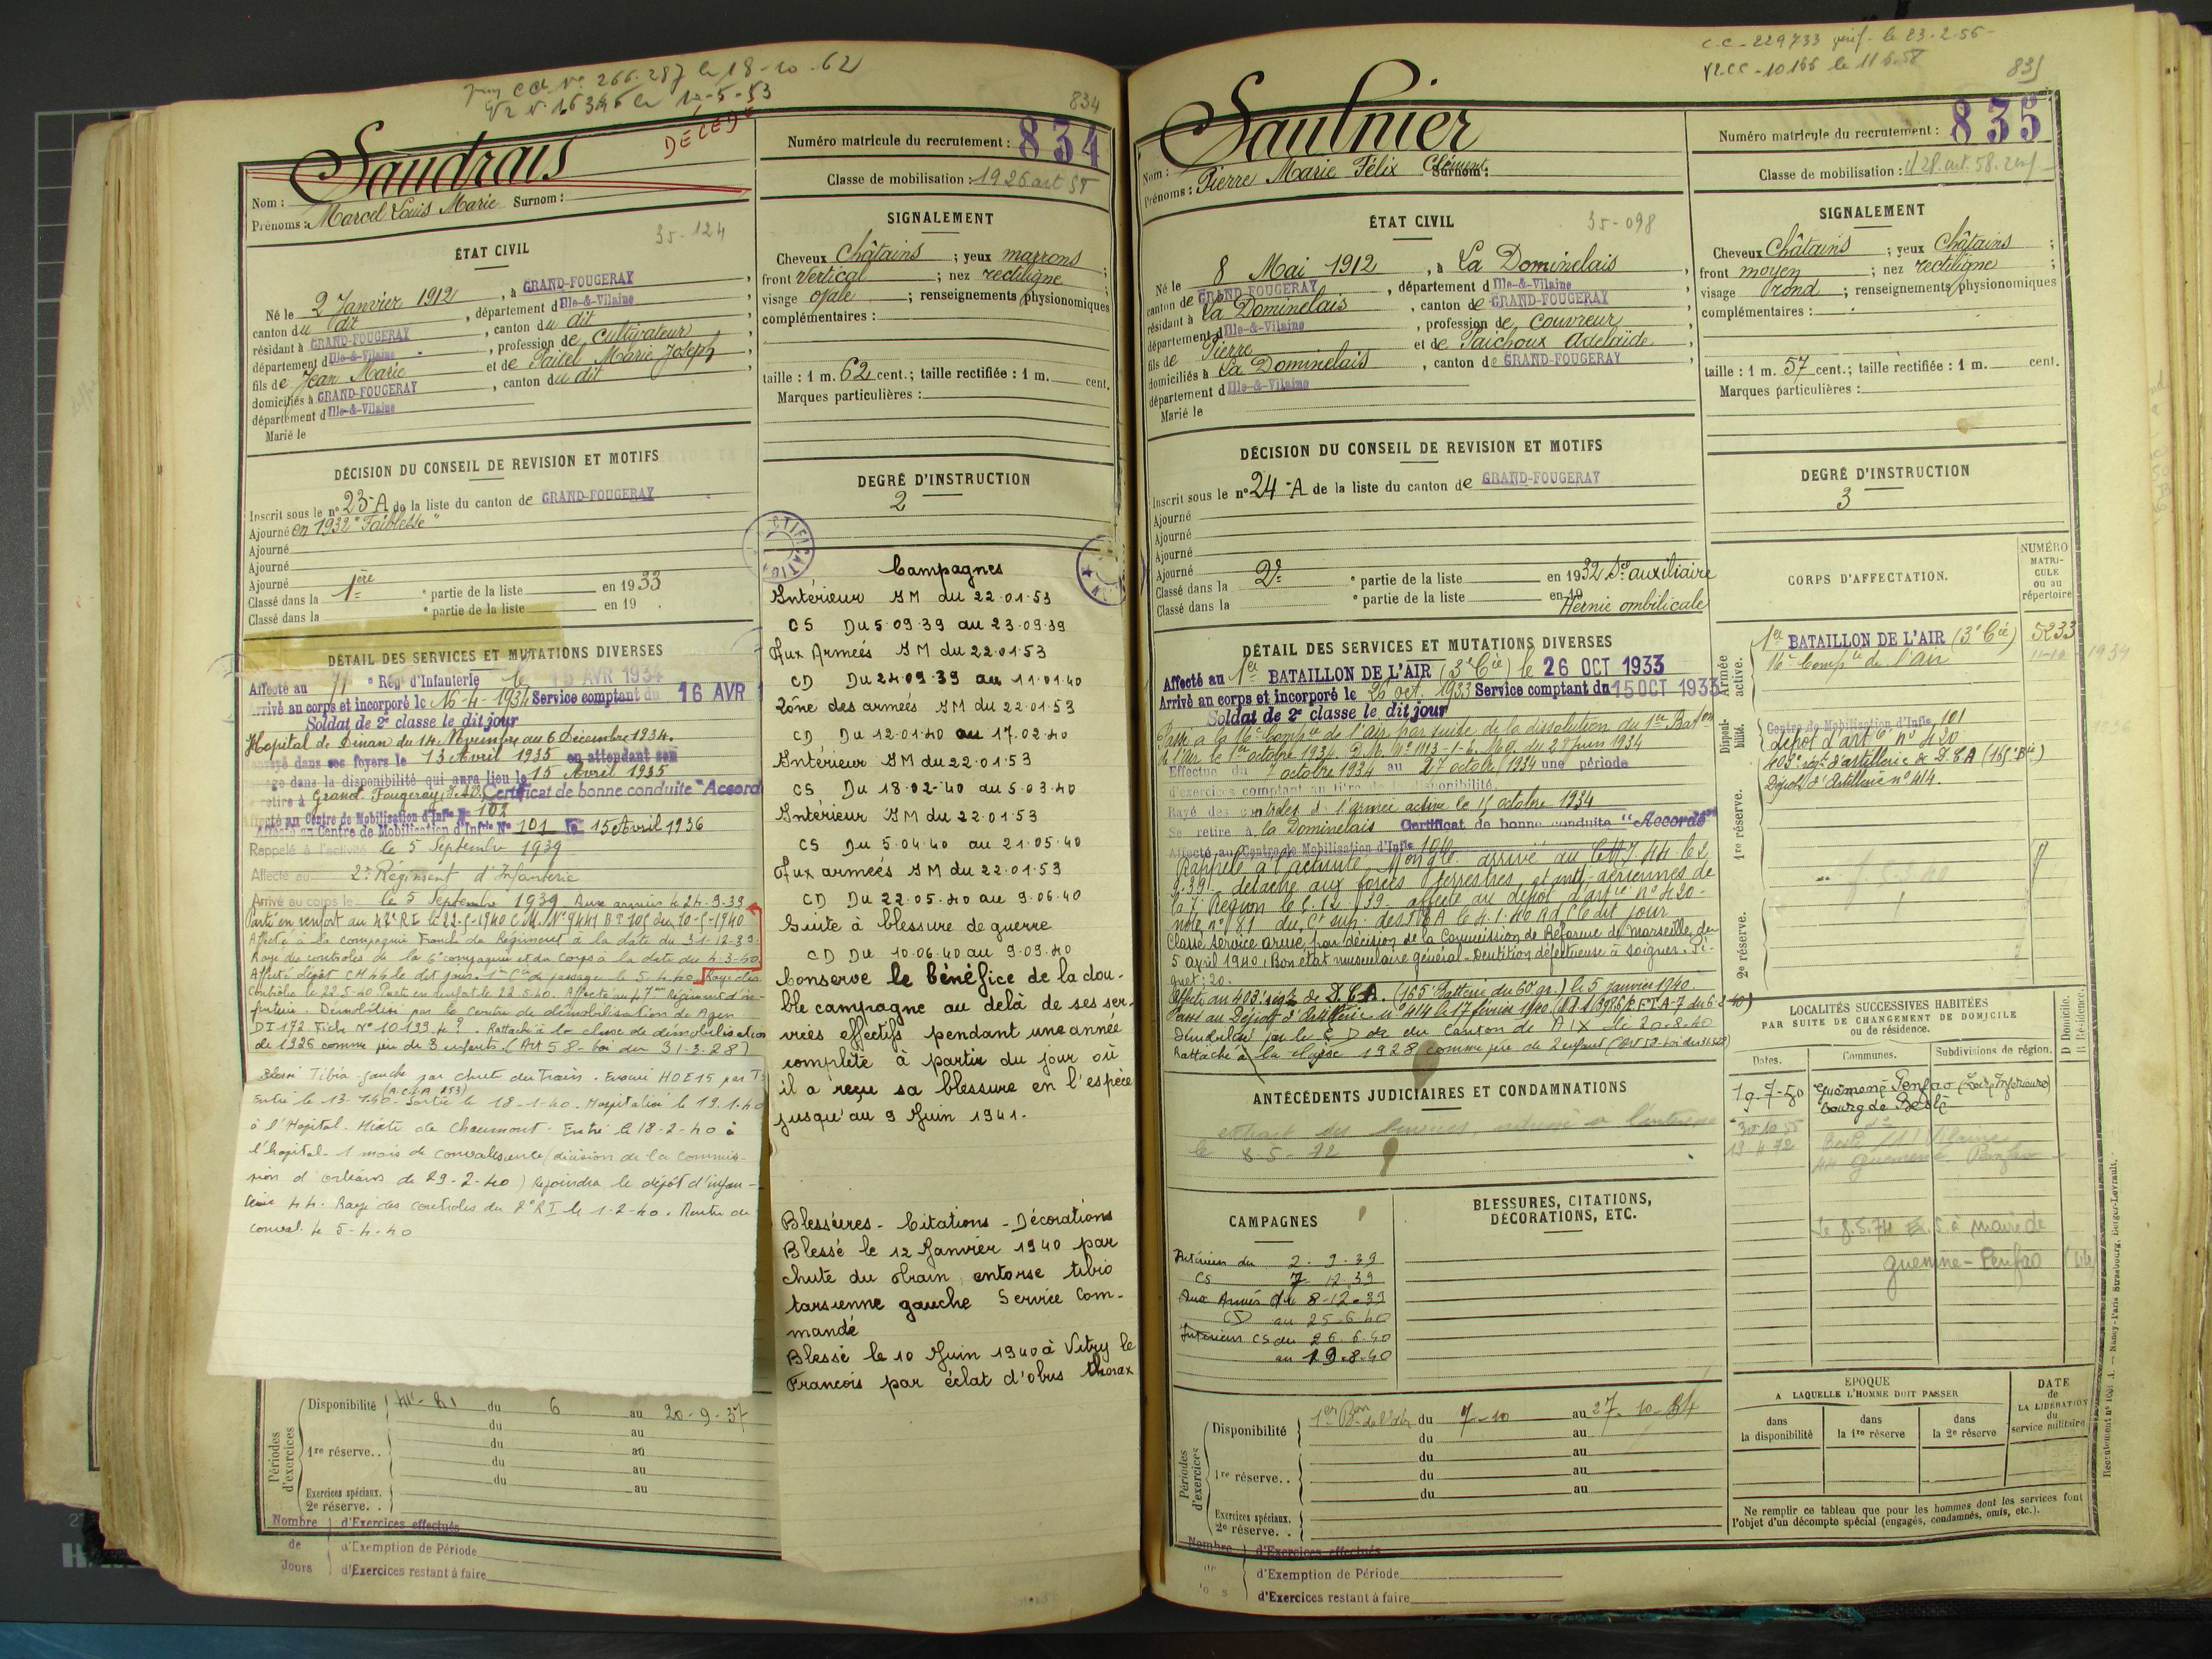 266.287 le 18-10-62
DÉCÉDÉ
834
Saudrais
Nom :
Prénoms : Marcel Louis Marie Surnom :
Numéro matricule du recrutement : 834
Classe de mobilisation : 1926 art 58
ÉTAT CIVIL
35-124
Né le 2 Janvier 1912, à GRAND-FOUGERAY,
canton du dit, département d'Ille-&-Vilaine
résidant à GRAND-FOUGERAY, canton du dit
département d'Ille-&-Vilaine, profession de cultivateur
fils de Jean Marie et de Marie Joseph,
domiciliés à GRAND-FOUGERAY, canton du dit
département d'Ille-&-Vilaine
Marié le
SIGNALEMENT
Cheveux Châtains ; yeux marrons ;
front vertical ; nez rectiligne ;
visage ovale ; renseignements physionomiques
complémentaires :
taille : 1 m. 62 cent.; taille rectifiée : 1 m. cent.
Marques particulières :
DÉCISION DU CONSEIL DE REVISION ET MOTIFS
Inscrit sous le n° 23-A de la liste du canton de GRAND-FOUGERAY
Ajourné en 1932 "Faiblesse"
Ajourné
Ajourné
Ajourné
Classé dans la 1ère partie de la liste en 1933
Classé dans la ° partie de la liste en 19 .
DEGRÉ D'INSTRUCTION
2
DÉTAIL DES SERVICES ET MUTATIONS DIVERSES
Affecté au ° Rég d'Infanterie le AVR 1934
Arrivé au corps et incorporé le 16-4-1934 Service comptant du 16 AVR
Soldat de 2e classe le dit jour
Hopital de Dinan du 14 Novembre au 6 Décembre 1934.
dans ses foyers le 13 Avril 1935 en attendant son
dans la disponibilité qui aura lieu le 15 Avril 1935
retire à Grand Fougeray Certificat de bonne conduite "Accord
Affecté au Centre de Mobilisation d'Infie N° 102
Affecté au Centre de Mobilisation d'Infie N° 101 le 15 Avril 1936
Rappelé à l'activité le 5 Septembre 1939
Affecté au 2e Régiment d'Infanterie
Arrivé au corps le le 5 Septembre 1939 Aux armées le 24-9-39
Affecté à la compagnie Franche du Régiment à la date du 31-12-39.
Rayé des controles de la 6e compagnie et du Corps à la date du 4-3-40
contrôles le 22.5.40 Parti en renfort le 22.5.40. Affecté au 47me Régiment d'in-
fanterie. Démobilisé par le centre de démobilisation de Agen
DI 172 Fiche N° 10.199 le ? . Rattaché à la classe de démobilisation
de 1926 comme père de 3 enfants. (Art 58 - loi du 31-3-28)
Blessé Tibia gauche par chute du Train. Evacué HOE15 par T
Entré le 13-1-40 - Sortie le 18-1-40. Hospitalisé le 19.1.40
à l'Hopital Mixte de Chaumont. Entré le 18-2-40 à
l'hopital - 1 mois de convalescence (décision de la Commis-
sion d'orléans de 29-2-40) Rejoindra le dépôt d'infan-
terie 44. Rayé des controles du 2e RI le 1-2-40. Rentré de
conval. le 5-4-40
Campagnes
Intérieur IM du 22.01.53
CS Du 5.09.39 au 23.09.39
Aux Armées IM du 22.01.53
CD Du 24.09.39 au 11.01.40
Zône des armées IM du 22.01.53
CD Du 12.01.40 au 17.02.40
Intérieur IM du 22.01.53
CS Du 18.02.40 au 5.03.40
Intérieur IM du 22.01.53
CS Du 5.04.40 au 21.05.40
Aux armées IM du 22.01.53
CD Du 22.05.40 au 9.06.40
Suite à blessure de guerre
CD Du 10.06.40 au 9.09.40
Conserve le bénéfice de la dou-
ble campagne au delà de ses ser-
vices effectifs pendant une année
complète à partir du jour où
il a reçu sa blessure en l'espèce
jusqu'au 9 Juin 1941.
Blessures - Citations - Décorations
Blessé le 12 Janvier 1940 par
chute du train, entorse tibio
tarsienne gauche Service Com-
mandé
Blessé le 10 Juin 1940 à Vitry le
François par éclat d'obus thorax
Périodes d'exercices
Disponibilité du 6 au 20-9-37
du au
1re réserve. . du au
du au
du au
Exercices spéciaux.
2e réserve. .
Nombre de Jours
d'Exercices effectués
d'Exemption de Période
d'Exercices restant à faire
C.C. 229733 vérif. le 23-2-56-
le 11-6-58
835
Saulnier
Nom :
Prénoms : Pierre Marie Félix Clément Surnom :
Numéro matricule du recrutement : 835
Classe de mobilisation : 28 art. 58.
ÉTAT CIVIL
35-098
Né le 8 Mai 1912, à La Dominelais,
canton de GRAND-FOUGERAY, département d'Ille-&-Vilaine
résidant à La Dominelais, canton de GRAND-FOUGERAY
département d'Ille-&-Vilaine, profession de couvreur
fils de Pierre et de Paichoux Adélaïde
domiciliés à La Dominelais, canton de GRAND-FOUGERAY
département d'Ille-&-Vilaine
Marié le
SIGNALEMENT
Cheveux Châtains ; yeux Châtains ;
front moyen ; nez rectiligne ;
visage rond ; renseignements physionomiques
complémentaires :
taille : 1 m. 57 cent.; taille rectifiée : 1 m. cent.
Marques particulières :
DÉCISION DU CONSEIL DE REVISION ET MOTIFS
Inscrit sous le n° 24-A de la liste du canton de GRAND-FOUGERAY
Ajourné
Ajourné
Ajourné
Ajourné
Classé dans la 2e partie de la liste en 1932 Sce auxiliaire
Classé dans la ° partie de la liste en 19 Hernie ombilicale
DEGRÉ D'INSTRUCTION
3
DÉTAIL DES SERVICES ET MUTATIONS DIVERSES
Affecté au 1er BATAILLON DE L'AIR (3e Cie) le 26 OCT 1933
Arrivé au corps et incorporé le 26 oct. 1933 Service comptant du 15 OCT 1933
Soldat de 2e classe le dit jour
Passé à la 16e Compie de l'air par suite de la dissolution du 1er Baton
de l'air le 1er octobre 1934. du 28 juin 1934
Effectue du 7 octobre 1934 au 27 octobre 1934 une période
d'exercices comptant au titre de la disponibilité.
Rayé des controles de l'armée active le 15 octobre 1934
Se retire à la Dominelais Certificat de bonne conduite "Accordé"
Affecté au Centre de Mobilisation d'Infie 101
Rappelé à l'activité arrivé au le 2
9.39 détaché aux forces terrestres et anti-aériennes de
la 7e Région le 8.12.39 affecté au dépot d'artie n° 420.
Classé service armé, par décision de la Commission de Réforme de Marseille du
5 avril 1940. Bon état musculaire général - Dentition défectueuse à soigner. Pi-
gnet : 20.
Affecté au 403e régt de D.C.A. (165e Batterie du 60e gr.) le 5 janvier 1940.
Passé au Dépôt d'Artillerie n° 414 le 17 février 1940
Démobilisé par le C D de du Canton de AIX le 20-8-40
Rattaché à la classe 1928 comme père de 2 enfants
CORPS D'AFFECTATION.
NUMÉRO MATRI-CULE ou au répertoire
Armée active.
1er BATAILLON DE L'AIR (3e Cie) 5233
16e Compie de l'air
Disponi-bilité.
Centre de Mobilisation d'Infie 101
dépot d'artie n° 420
403e régt d'artillerie de D.C.A (165e Bie)
Dépot d'Artillerie n° 414.
1re réserve.
2e réserve.
ANTÉCÉDENTS JUDICIAIRES ET CONDAMNATIONS
le 8-5-72
LOCALITÉS SUCCESSIVES HABITÉES
PAR SUITE DE CHANGEMENT DE DOMICILE
ou de résidence.
Dates. Communes. Subdivisions de région. D Domicile. R Résidence.
19-7-50 Guémené Penfao (Loire Inférieure)
bourg de Beslé
30-10-55 do
Guémené Penfao
le 8.5.74 Ex. S à maire de
guemene-Penfao (44)
CAMPAGNES
BLESSURES, CITATIONS,
DÉCORATIONS, ETC.
Intérieur du 2-9-39
CS 7-12-39
Aux Armées du 8-12-39
CD au 25-6-40
Intérieur CS du 26.6.40
au 19.8.40
Périodes d'exercices
Disponibilité 1er Bon de l'air du 7-10 au 27-10-34
du au
1re réserve. . du au
du au
du au
Exercices spéciaux.
2e réserve. .
Nombre
d'Exercices effectués
d'Exemption de Période
d'Exercices restant à faire
EPOQUE
A LAQUELLE L'HOMME DOIT PASSER
dans la disponibilité
dans la 1re réserve
dans la 2e réserve
DATE de LA LIBÉRATION du service militaire
Ne remplir ce tableau que pour les hommes dont les services font
l'objet d'un décompte spécial (engagés, condamnés, omis, etc.).